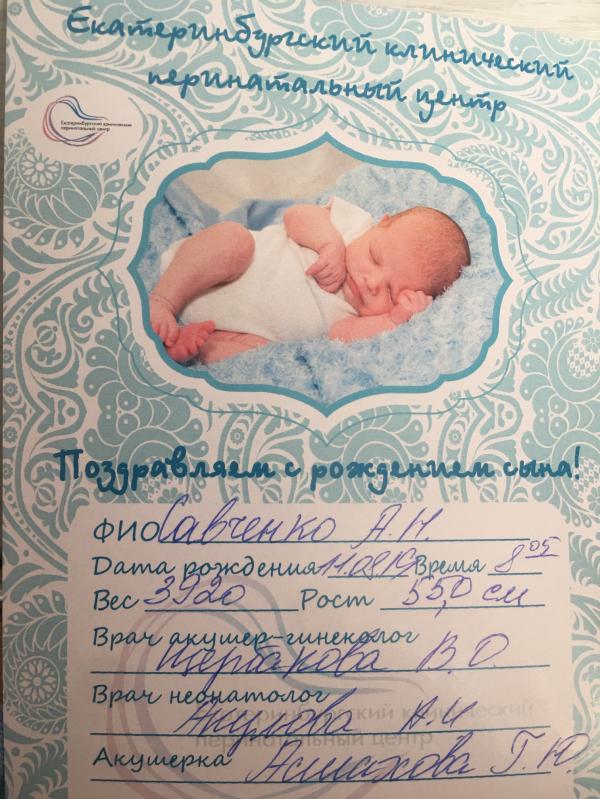 Екатеринбургский клинический
перинатальный центр
Екатеринбургский клинический
перинатальный центр
Поздравляем с рождением сына!
ФИО Савченко А.Н.
Дата рождения 11.08.19 Время 8 05
Вес 3920 Рост 55,0 см
Врач акушер-гинеколог
Щербакова В.О.
Врач неонатолог
Екатеринбургский клинический
перинатальный центр
Акушерка Г.Ю.